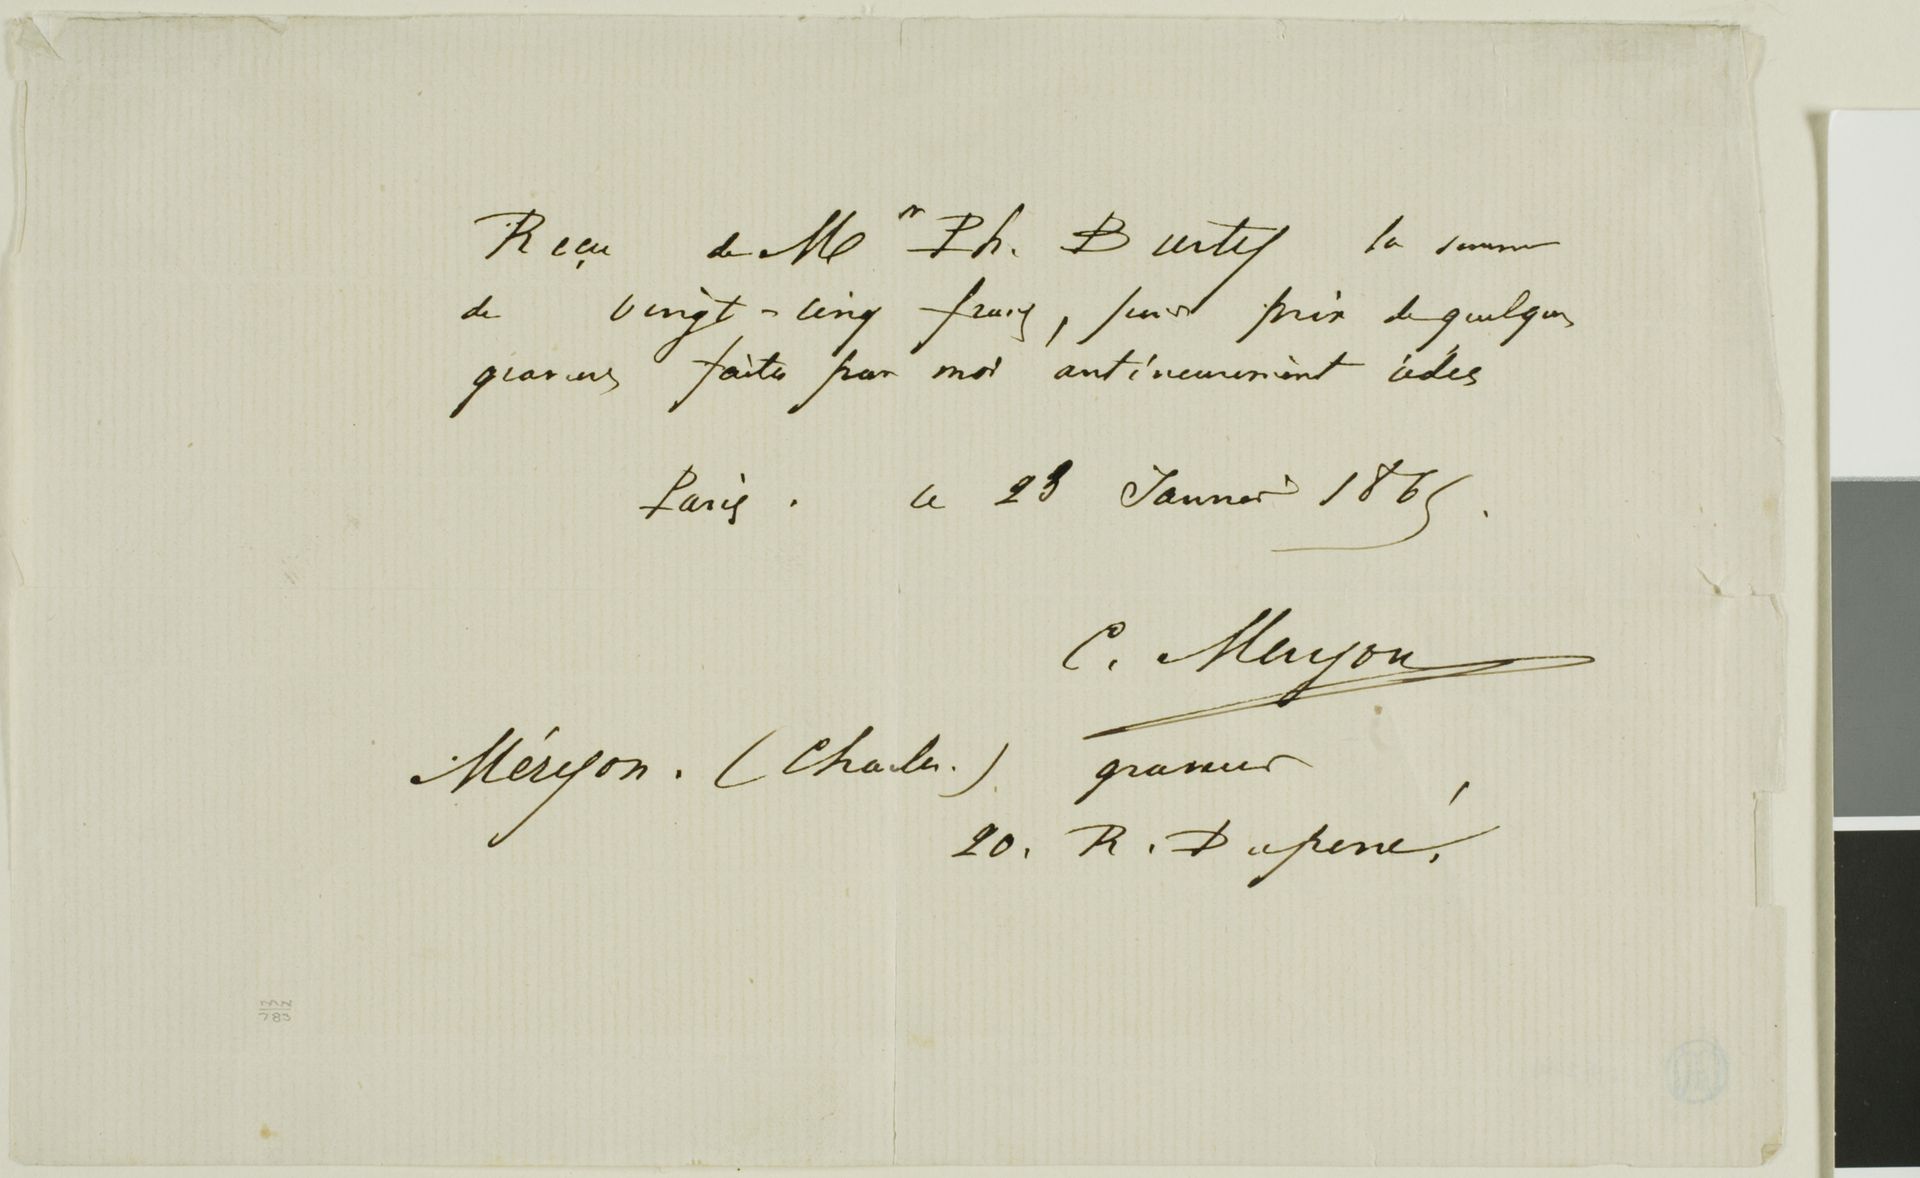 Reçu de M^r Ph. Burty la somme
de vingt-cinq francs, pour prix de quelques
gravures faites par moi antérieurement cédées
Paris. le 23 Janvier 1865.
C. Meryon
Méryon. (Charles.) graveur
20. R. Duperré.
MN
783